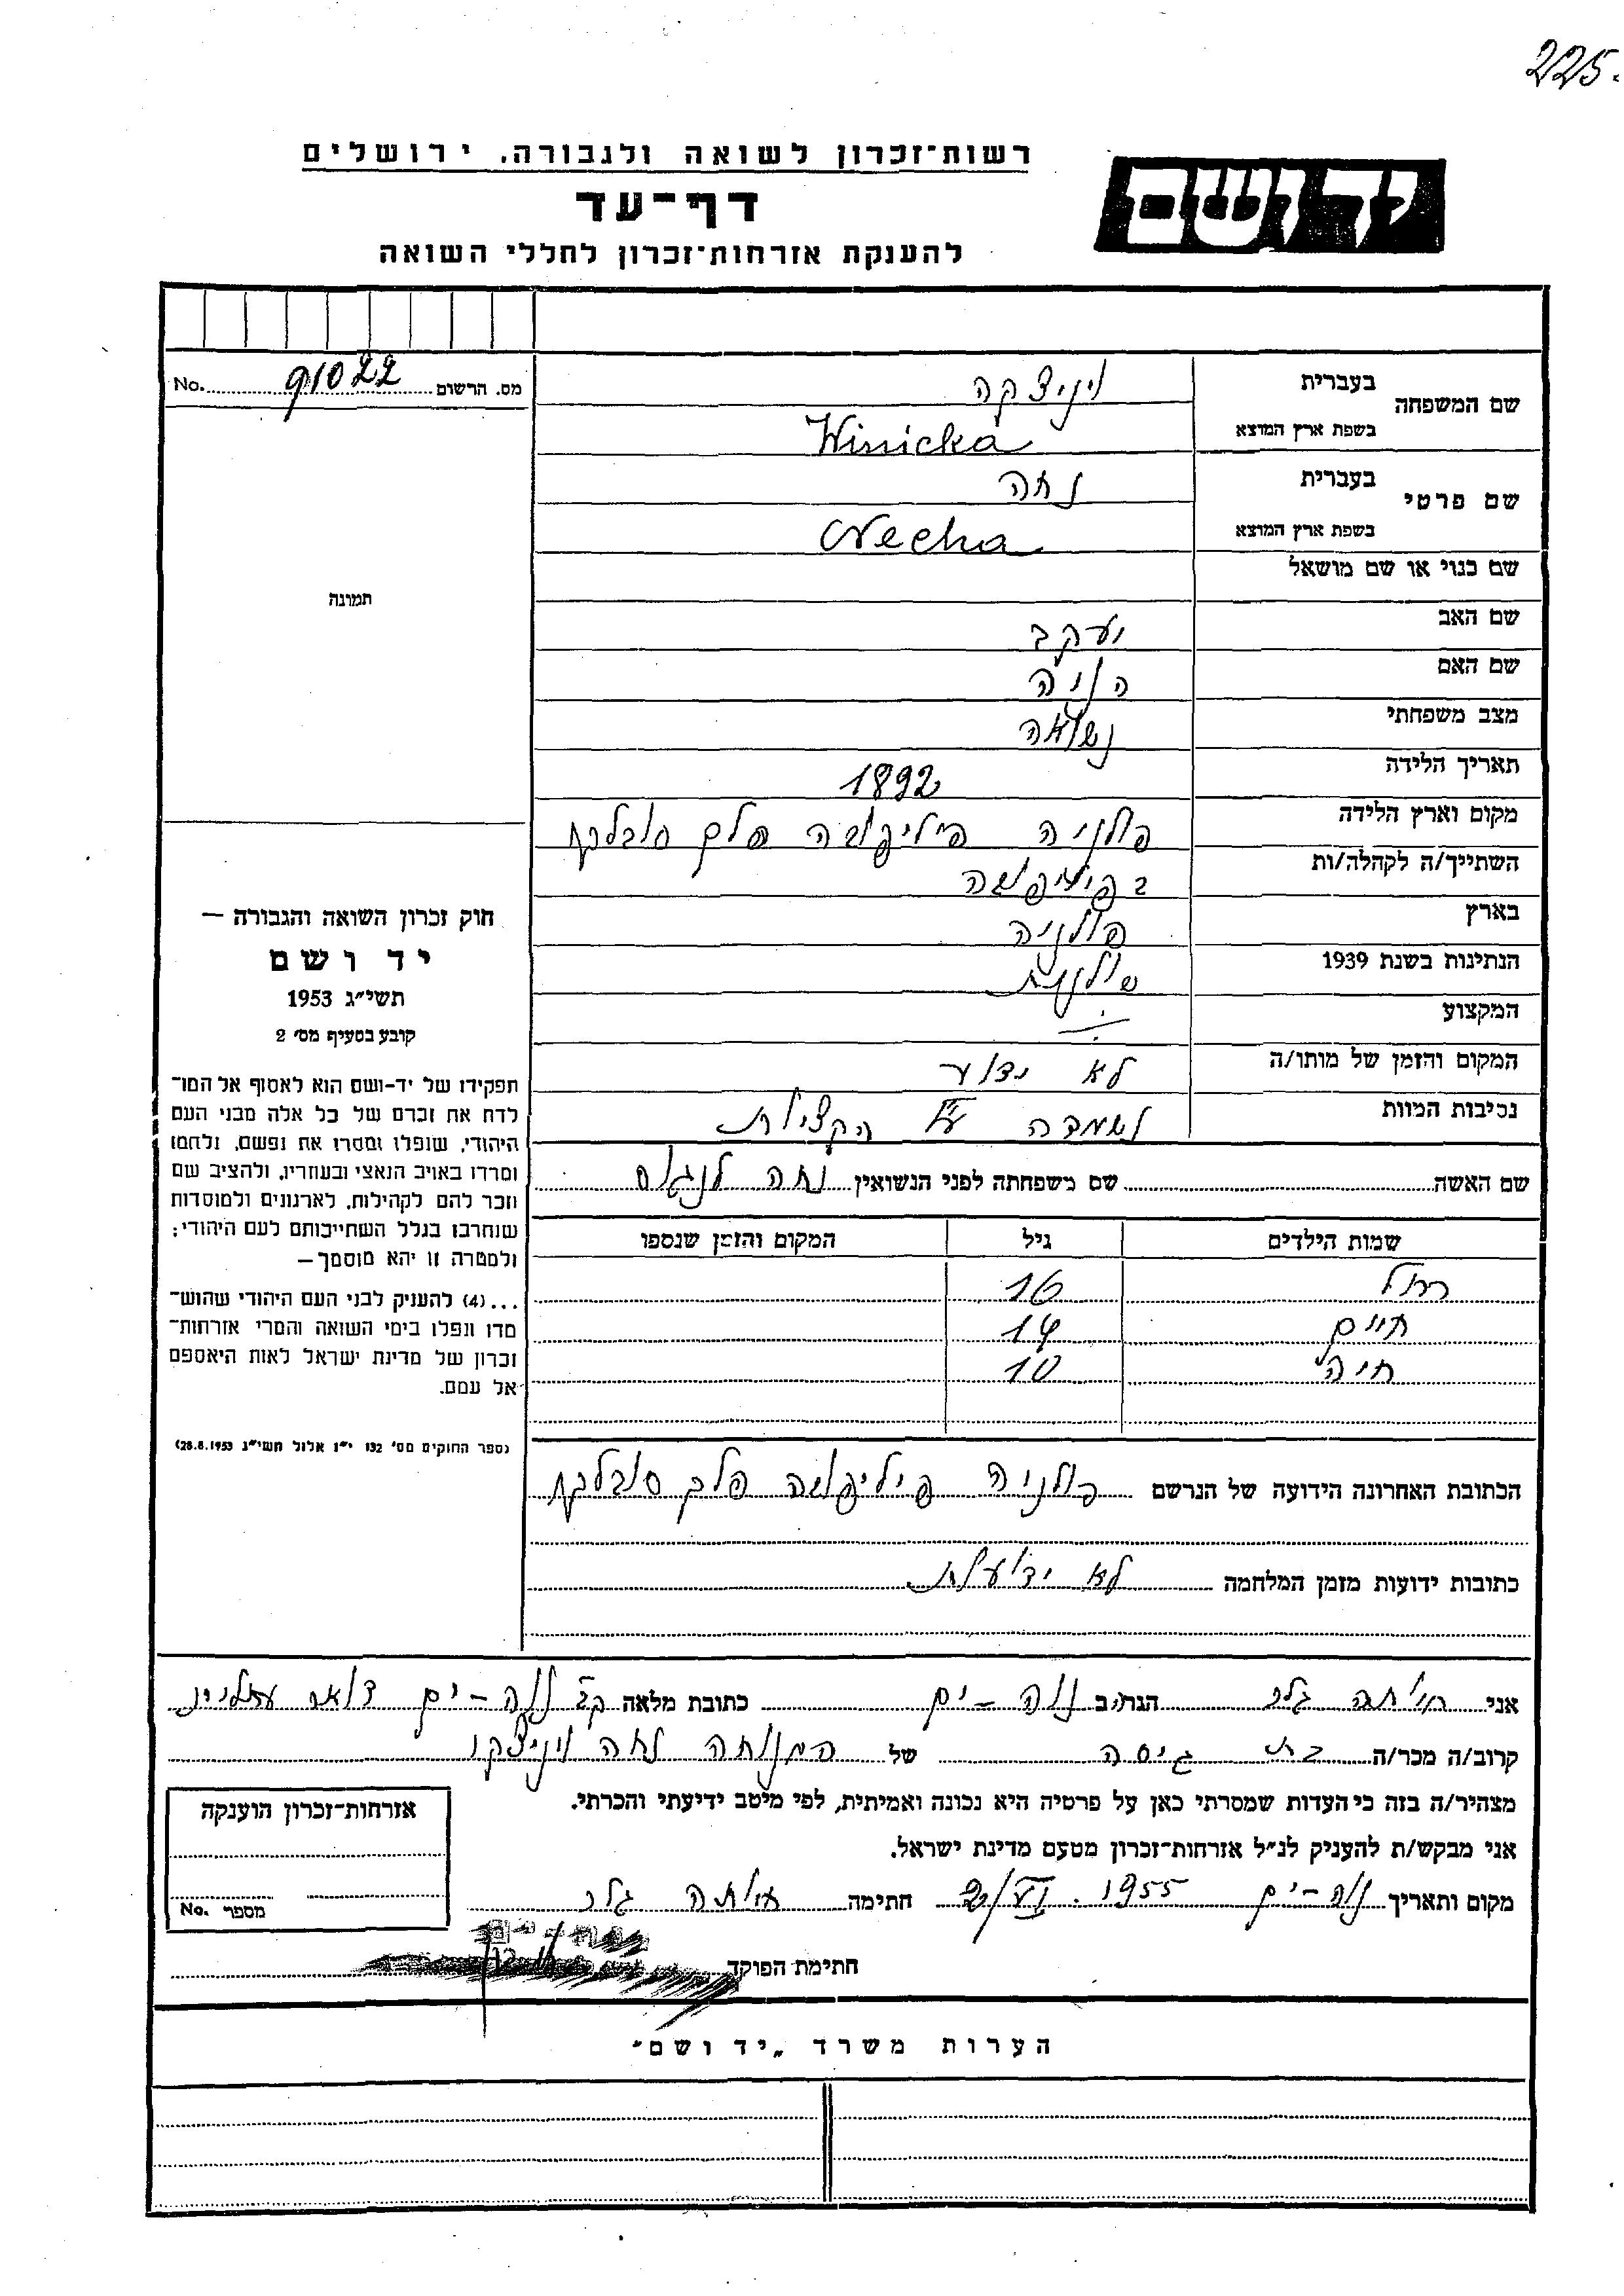 225.
רשות־זכרון לשואה ולגבורה, ירושלים
יד ושם
דף־עד
להענקת אזרחות־זכרון לחללי השואה
מס. הרשום 91022 No.
שם המשפחה בעברית ויניצקה
בשפת ארץ המוצא Winicka
שם פרטי בעברית נחה
בשפת ארץ המוצא Necha
שם כנוי או שם מושאל
שם האב יעקב
שם האם
מצב משפחתי נשואה
תאריך הלידה 1892
מקום וארץ הלידה פולניה פיליפובה פלך סובלקי
השתייך/ה לקהלה/ות בפיליפובה
בארץ פולניה
הנתינות בשנת 1939 פולנית
המקצוע
המקום והזמן של מותו/ה לא ידוע
נסיבות המוות
שם האשה שם משפחתה לפני הנשואין נחה
שמות הילדים גיל המקום והזמן שנספו
רחל 16
חיים 14
חיה 10
הכתובת האחרונה הידועה של הנרשם פולניה פיליפובה פלך סובלקי
כתובות ידועות מזמן המלחמה לא ידועות
תמונה
חוק זכרון השואה והגבורה —
יד ושם
תשי״ג 1953
קובע בסעיף מס׳ 2
תפקידו של יד-ושם הוא לאסוף אל המו־
לדת את זכרם של כל אלה מבני העם
היהודי, שנפלו ומסרו את נפשם, נלחמו
ומרדו באויב הנאצי ובעוזריו, ולהציב שם
וזכר להם לקהילות, לארגונים ולמוסדות
שנחרבו בגלל השתייכותם לעם היהודי;
ולמטרה זו יהא מוסמך—
...(4) להעניק לבני העם היהודי שהוש־
מדו ונפלו בימי השואה והמרי אזרחות־
זכרון של מדינת ישראל לאות היאספם
אל עמם.
(ספר החוקים מס׳ 132 י״ז אלול תשי״ג 28.8.1953)
אני הגר/ה ב נוה-ים כתובת מלאה נוה-ים דואר עתלית
קרוב/ה מכר/ה בת גיסה של המנוחה נחה ויניצקי
מצהיר/ה בזה כי העדות שמסרתי כאן על פרטיה היא נכונה ואמיתית, לפי מיטב ידיעתי והכרתי.
אני מבקש/ת להעניק לנ״ל אזרחות־זכרון מטעם מדינת ישראל.
מקום ותאריך נוה-ים 1955 חתימה
חתימת הפוקד
אזרחות־זכרון הוענקה
מספר No.
הערות משרד „יד ושם״